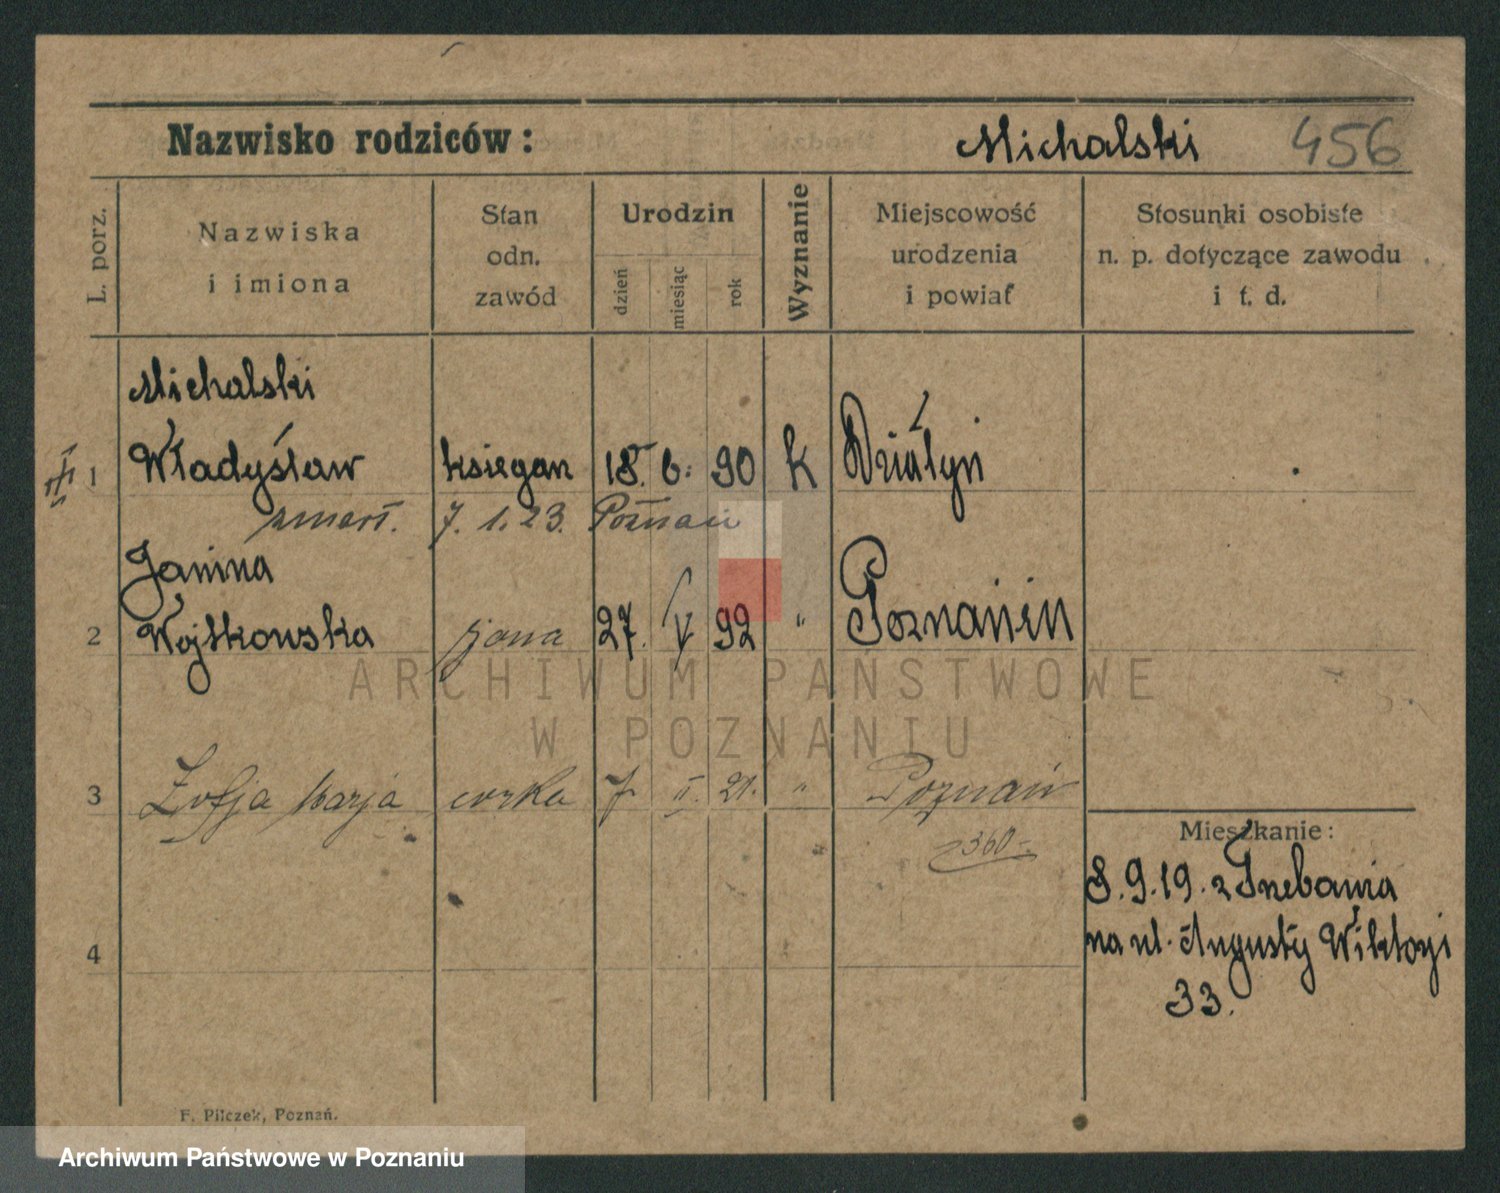 Nazwisko rodziców: Michalski 456
L. porz.
Nazwiska i imiona
Stan odn. zawód
Urodzin
dzień miesiąc rok
Wyznanie
Miejscowość urodzenia i powiat
Stosunki osobiste n. p. dotyczące zawodu i t. d.
Michalski
1 Władysław księgarz 18. 6. 90 k Działyń
zmarł. 7. 1. 23. Poznań
Janina
2 Wojtkowska żona 27. V 92 " Poznań
3 Zofja Marja córka 7 II. 21. " Poznań
360
Mieszkanie:
8.9.19. z Trebania
na ul. Augusty Wiktorji
33.
4
F. Pilczek, Poznań.
ARCHIWUM PAŃSTWOWE
W POZNANIU
Archiwum Państwowe w Poznaniu